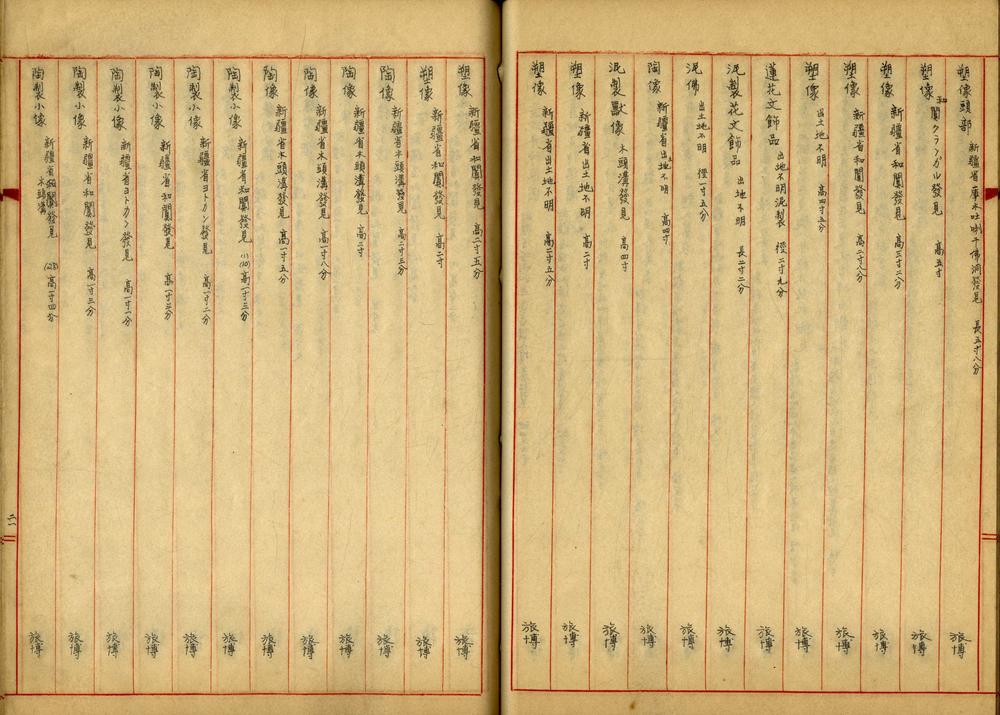 塑像頭部 新疆省庫木吐喇千佛洞發見 長五寸八分 旅博
塑像 和闐クランガル發見 高五寸 旅博
塑像 新疆省和闐發見 高三寸二分 旅博
塑像 新疆省和闐發見 高二寸八分 旅博
塑像 出土地不明 高四寸五分 旅博
蓮花文飾品 出土地不明泥製 徑二寸九分 旅博
泥製花文飾品 出土地不明 長二寸二分 旅博
泥佛 出土地不明 徑一寸五分 旅博
陶像 新疆省出土地不明 高四寸 旅博
泥製獸像 木頭溝發見 高四寸 旅博
塑像 新疆省出土地不明 高二寸 旅博
塑像 新疆省出土地不明 高二寸五分 旅博
塑像 新疆省和闐發見 高二寸五分 旅博
塑像 新疆省和闐發見 高二寸 旅博
陶像 新疆省木頭溝發見 高二寸三分 旅博
陶像 新疆省木頭溝發見 高二寸 旅博
陶像 新疆省木頭溝發見 高一寸八分 旅博
陶像 新疆省木頭溝發見 高一寸五分 旅博
陶製小像 新疆省和闐發見 (1)(10) 高一寸三分 旅博
陶製小像 新疆省ヨトカン發見 高一寸二分 旅博
陶製小像 新疆省和闐發見 高一寸二分 旅博
陶製小像 新疆省ヨトカン發見 高一寸一分 旅博
陶製小像 新疆省和闐發見 高一寸三分 旅博
陶製小像 新疆省木頭溝發見 (23) 高一寸四分 旅博
二一